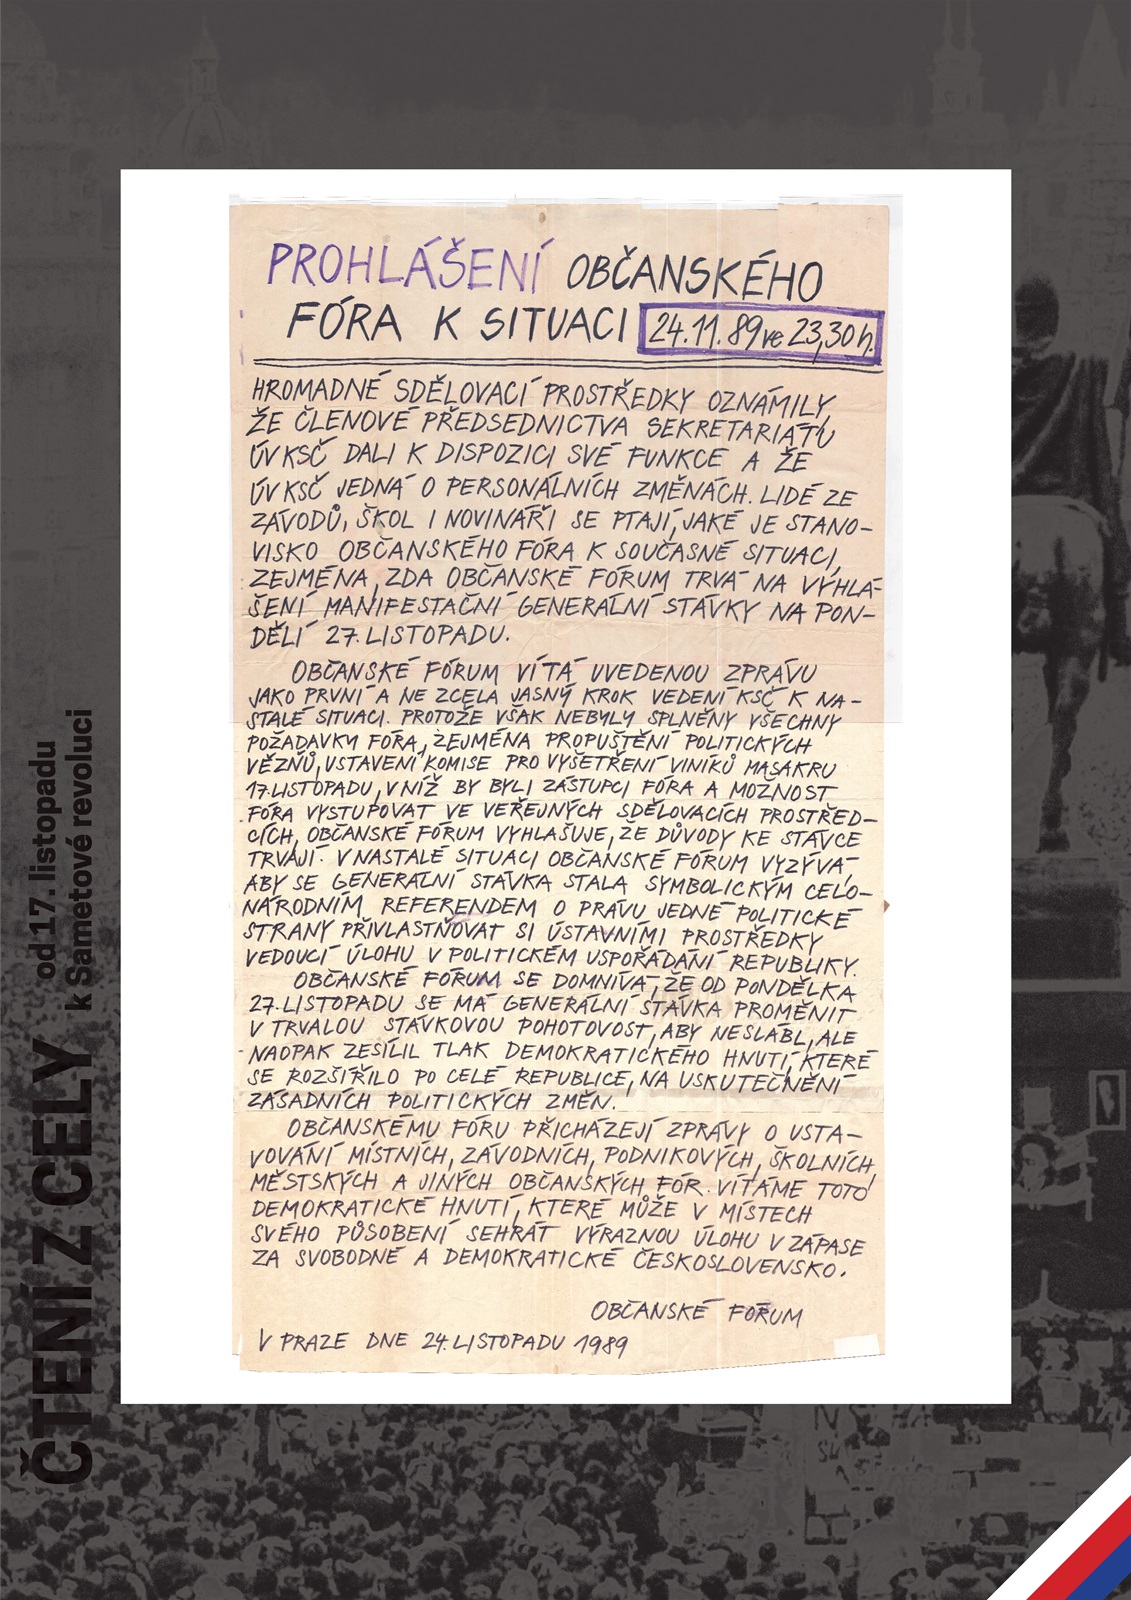 PROHLÁŠENÍ OBČANSKÉHO
FÓRA K SITUACI 24.11.89 ve 23,30 h.
HROMADNÉ SDĚLOVACÍ PROSTŘEDKY OZNÁMILY,
ŽE ČLENOVÉ PŘEDSEDNICTVA SEKRETARIÁTU
ÚV KSČ DALI K DISPOZICI SVÉ FUNKCE A ŽE
ÚV KSČ JEDNÁ O PERSONÁLNÍCH ZMĚNÁCH. LIDÉ ZE
ZÁVODŮ, ŠKOL I NOVINÁŘI SE PTAJÍ, JAKÉ JE STANO-
VISKO OBČANSKÉHO FÓRA K SOUČASNÉ SITUACI,
ZEJMÉNA, ZDA OBČANSKÉ FÓRUM TRVÁ NA VYHLÁ-
ŠENÍ MANIFESTAČNÍ GENERÁLNÍ STÁVKY NA PON-
DĚLÍ 27. LISTOPADU.
OBČANSKÉ FÓRUM VÍTÁ UVEDENOU ZPRÁVU
JAKO PRVNÍ A NE ZCELA JASNÝ KROK VEDENÍ KSČ K NA-
STALÉ SITUACI. PROTOŽE VŠAK NEBYLY SPLNĚNY VŠECHNY
POŽADAVKY FÓRA, ZEJMÉNA PROPUŠTĚNÍ POLITICKÝCH
VĚZŇŮ, USTAVENÍ KOMISE PRO VYŠETŘENÍ VINÍKŮ MASAKRU
17. LISTOPADU, V NÍŽ BY BYLI ZÁSTUPCI FÓRA A MOŽNOST
FÓRA VYSTUPOVAT VE VEŘEJNÝCH SDĚLOVACÍCH PROSTŘED-
CÍCH, OBČANSKÉ FÓRUM VYHLAŠUJE, ŽE DŮVODY KE STÁVCE
TRVAJÍ. V NASTALÉ SITUACI OBČANSKÉ FÓRUM VYZÝVÁ,
ABY SE GENERÁLNÍ STÁVKA STALA SYMBOLICKÝM CELO-
NÁRODNÍM REFERENDEM O PRÁVU JEDNÉ POLITICKÉ
STRANY PŘIVLASTŇOVAT SI ÚSTAVNÍMI PROSTŘEDKY
VEDOUCÍ ÚLOHU V POLITICKÉM USPOŘÁDÁNÍ REPUBLIKY.
OBČANSKÉ FÓRUM SE DOMNÍVÁ, ŽE OD PONDĚLKA
27. LISTOPADU SE MÁ GENERÁLNÍ STÁVKA PROMĚNIT
V TRVALOU STÁVKOVOU POHOTOVOST, ABY NESLÁBL, ALE
NAOPAK ZESÍLIL TLAK DEMOKRATICKÉHO HNUTÍ, KTERÉ
SE ROZŠÍŘILO PO CELÉ REPUBLICE, NA USKUTEČNĚNÍ
ZÁSADNÍCH POLITICKÝCH ZMĚN.
OBČANSKÉMU FÓRU PŘICHÁZEJÍ ZPRÁVY O USTA-
VOVÁNÍ MÍSTNÍCH, ZÁVODNÍCH, PODNIKOVÝCH, ŠKOLNÍCH,
MĚSTSKÝCH A JINÝCH OBČANSKÝCH FÓR. VÍTÁME TOTO
DEMOKRATICKÉ HNUTÍ, KTERÉ MŮŽE V MÍSTECH
SVÉHO PŮSOBENÍ SEHRÁT VÝRAZNOU ÚLOHU V ZÁPASE
ZA SVOBODNÉ A DEMOKRATICKÉ ČESKOSLOVENSKO.
OBČANSKÉ FÓRUM
V PRAZE DNE 24. LISTOPADU 1989
ČTENÍ Z CELY
od 17. listopadu
k Sametové revoluci